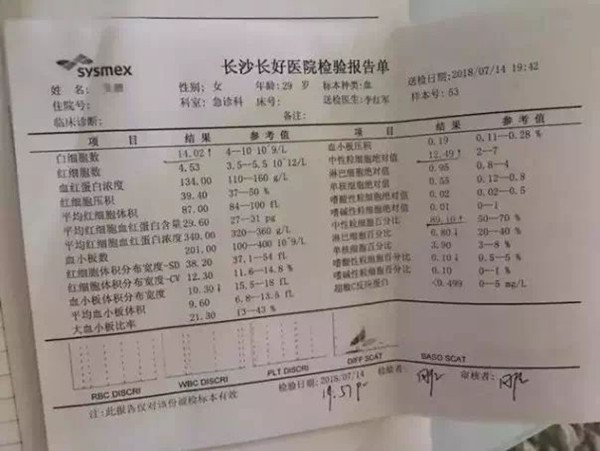 sysmex
长沙长好医院检验报告单
姓 名: 性别: 女 年龄: 29 岁 标本种类: 血 送检日期: 2018/07/14 19:42
住院号: 科室: 急诊科 床号: 送检医生: 李红军 样本号: 53
临床诊断: 备注:
项 目 结 果 参 考 值
白细胞数 14.02↑ 4—10 10^9/L
红细胞数 4.53 3.5—5.5 10^12/L
血红蛋白浓度 134.00 110—160 g/L
红细胞压积 39.40 37—50 %
平均红细胞体积 87.00 84—100 fL
平均红细胞血红蛋白含量 29.60 27—31 pg
平均红细胞血红蛋白浓度 340.00 320—360 g/L
血小板数 201.00 100—400 10^9/L
红细胞体积分布宽度-SD 38.20 37.1—54 fL
红细胞体积分布宽度-CV 12.30 11.6—14.8 %
血小板体积分布宽度 10.30↓ 15.5—18 fL
平均血小板体积 9.60 6.8—13.5 fL
大血小板比率 21.30 13—43 %
项 目 结 果 参 考 值
血小板压积 0.19 0.11—0.28 %
中性粒细胞绝对值 12.49↑ 2—7
淋巴细胞绝对值 0.95 0.8—4
单核细胞绝对值 0.55 0.12—0.8
嗜酸性粒细胞绝对值 0.02 0.02—0.5
嗜碱性粒细胞绝对值 0.01 0—1
中性粒细胞百分比 89.10↑ 50—70 %
淋巴细胞百分比 6.80↓ 20—40 %
单核细胞百分比 3.90 3—8 %
嗜酸性粒细胞百分比 0.10↓ 0.5—5 %
嗜碱性粒细胞百分比 0.10 0—1 %
超敏C反应蛋白 <0.499 0—5 mg/L
RBC DISCRI WBC DISCRI PLT DISCRI DIFF SCAT BASO SCAT
检验日期: 2018/07/14 检验者: 审核者:
注: 此报告仅对该份被检标本有效